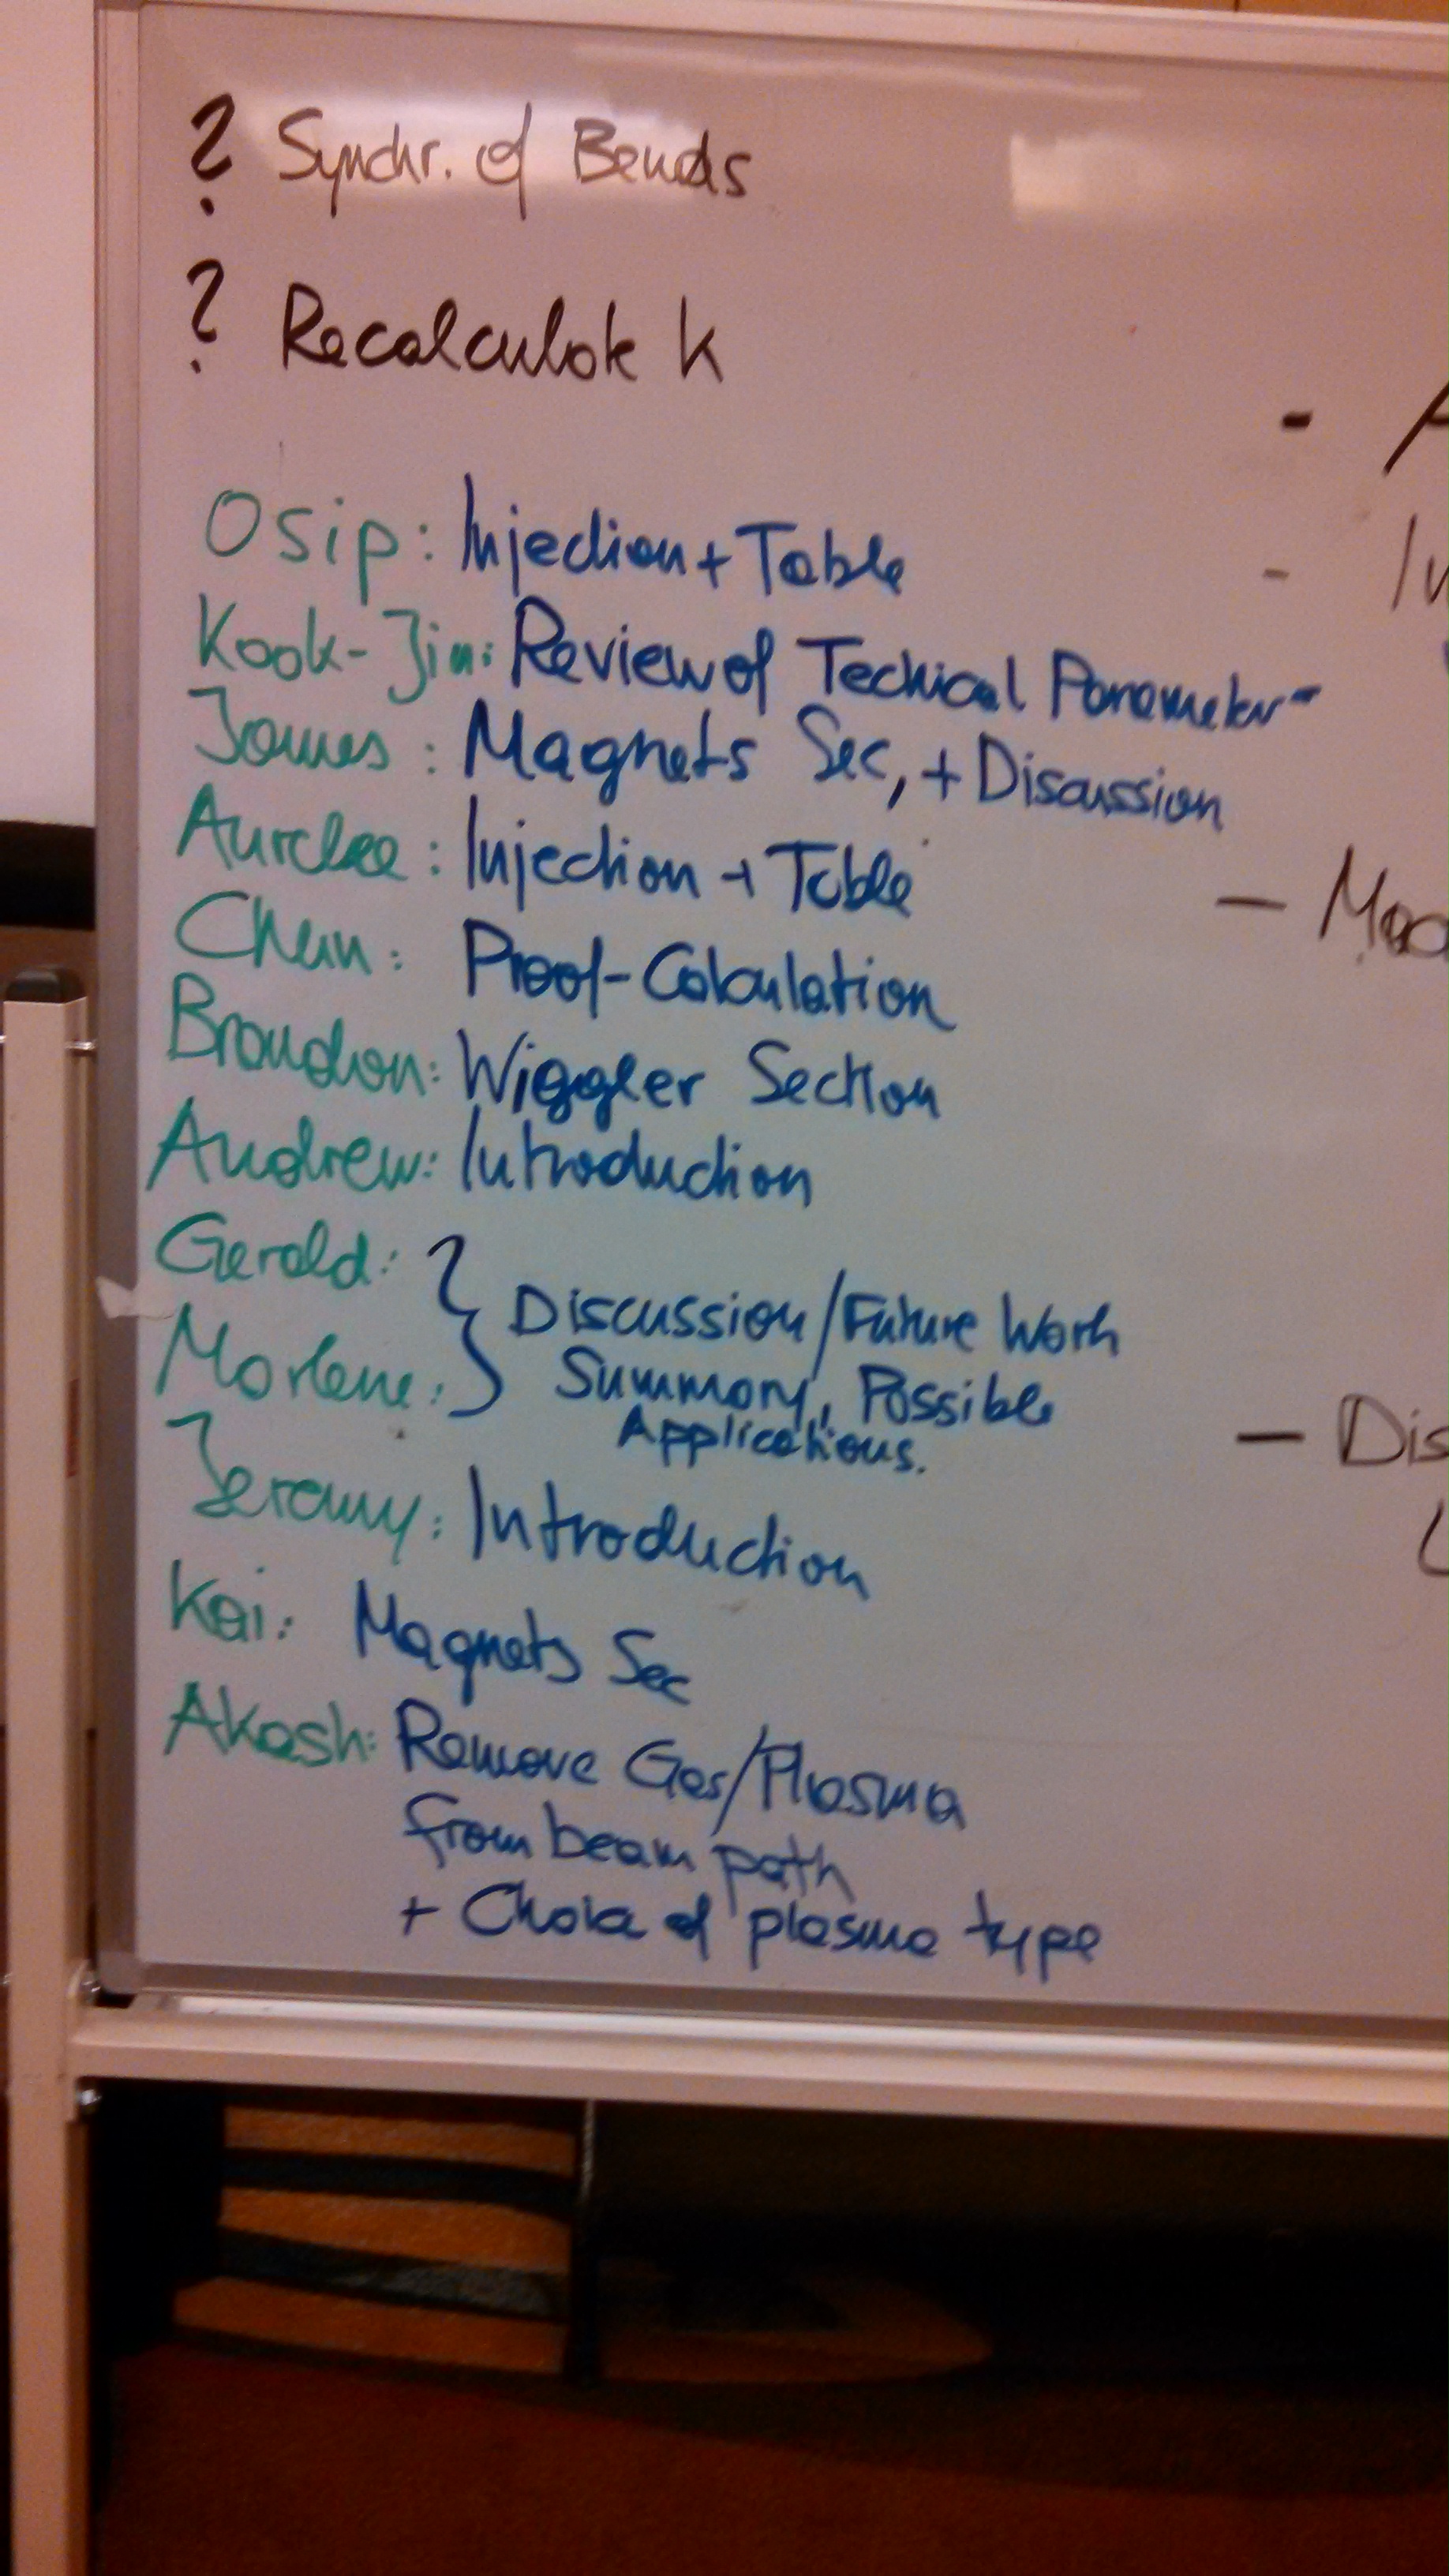 ? Synchr. of Bends
? Recalculate k
Osip: Injection + Table
Kook-Jin: Review of Techical Parameter
James: Magnets Sec, + Discussion
Aurelee: Injection + Table
Chun: Proof-Calculation
Brandon: Wiggler Section
Andrew: Introduction
Gerald: } Discussion/Future Work
Marlene: } Summary, Possible
Applications.
Jeramy: Introduction
Kai: Magnets Sec
Akash: Remove Gas/Plasma
from beam path
+ Choice of plasma type
- In
- Dis